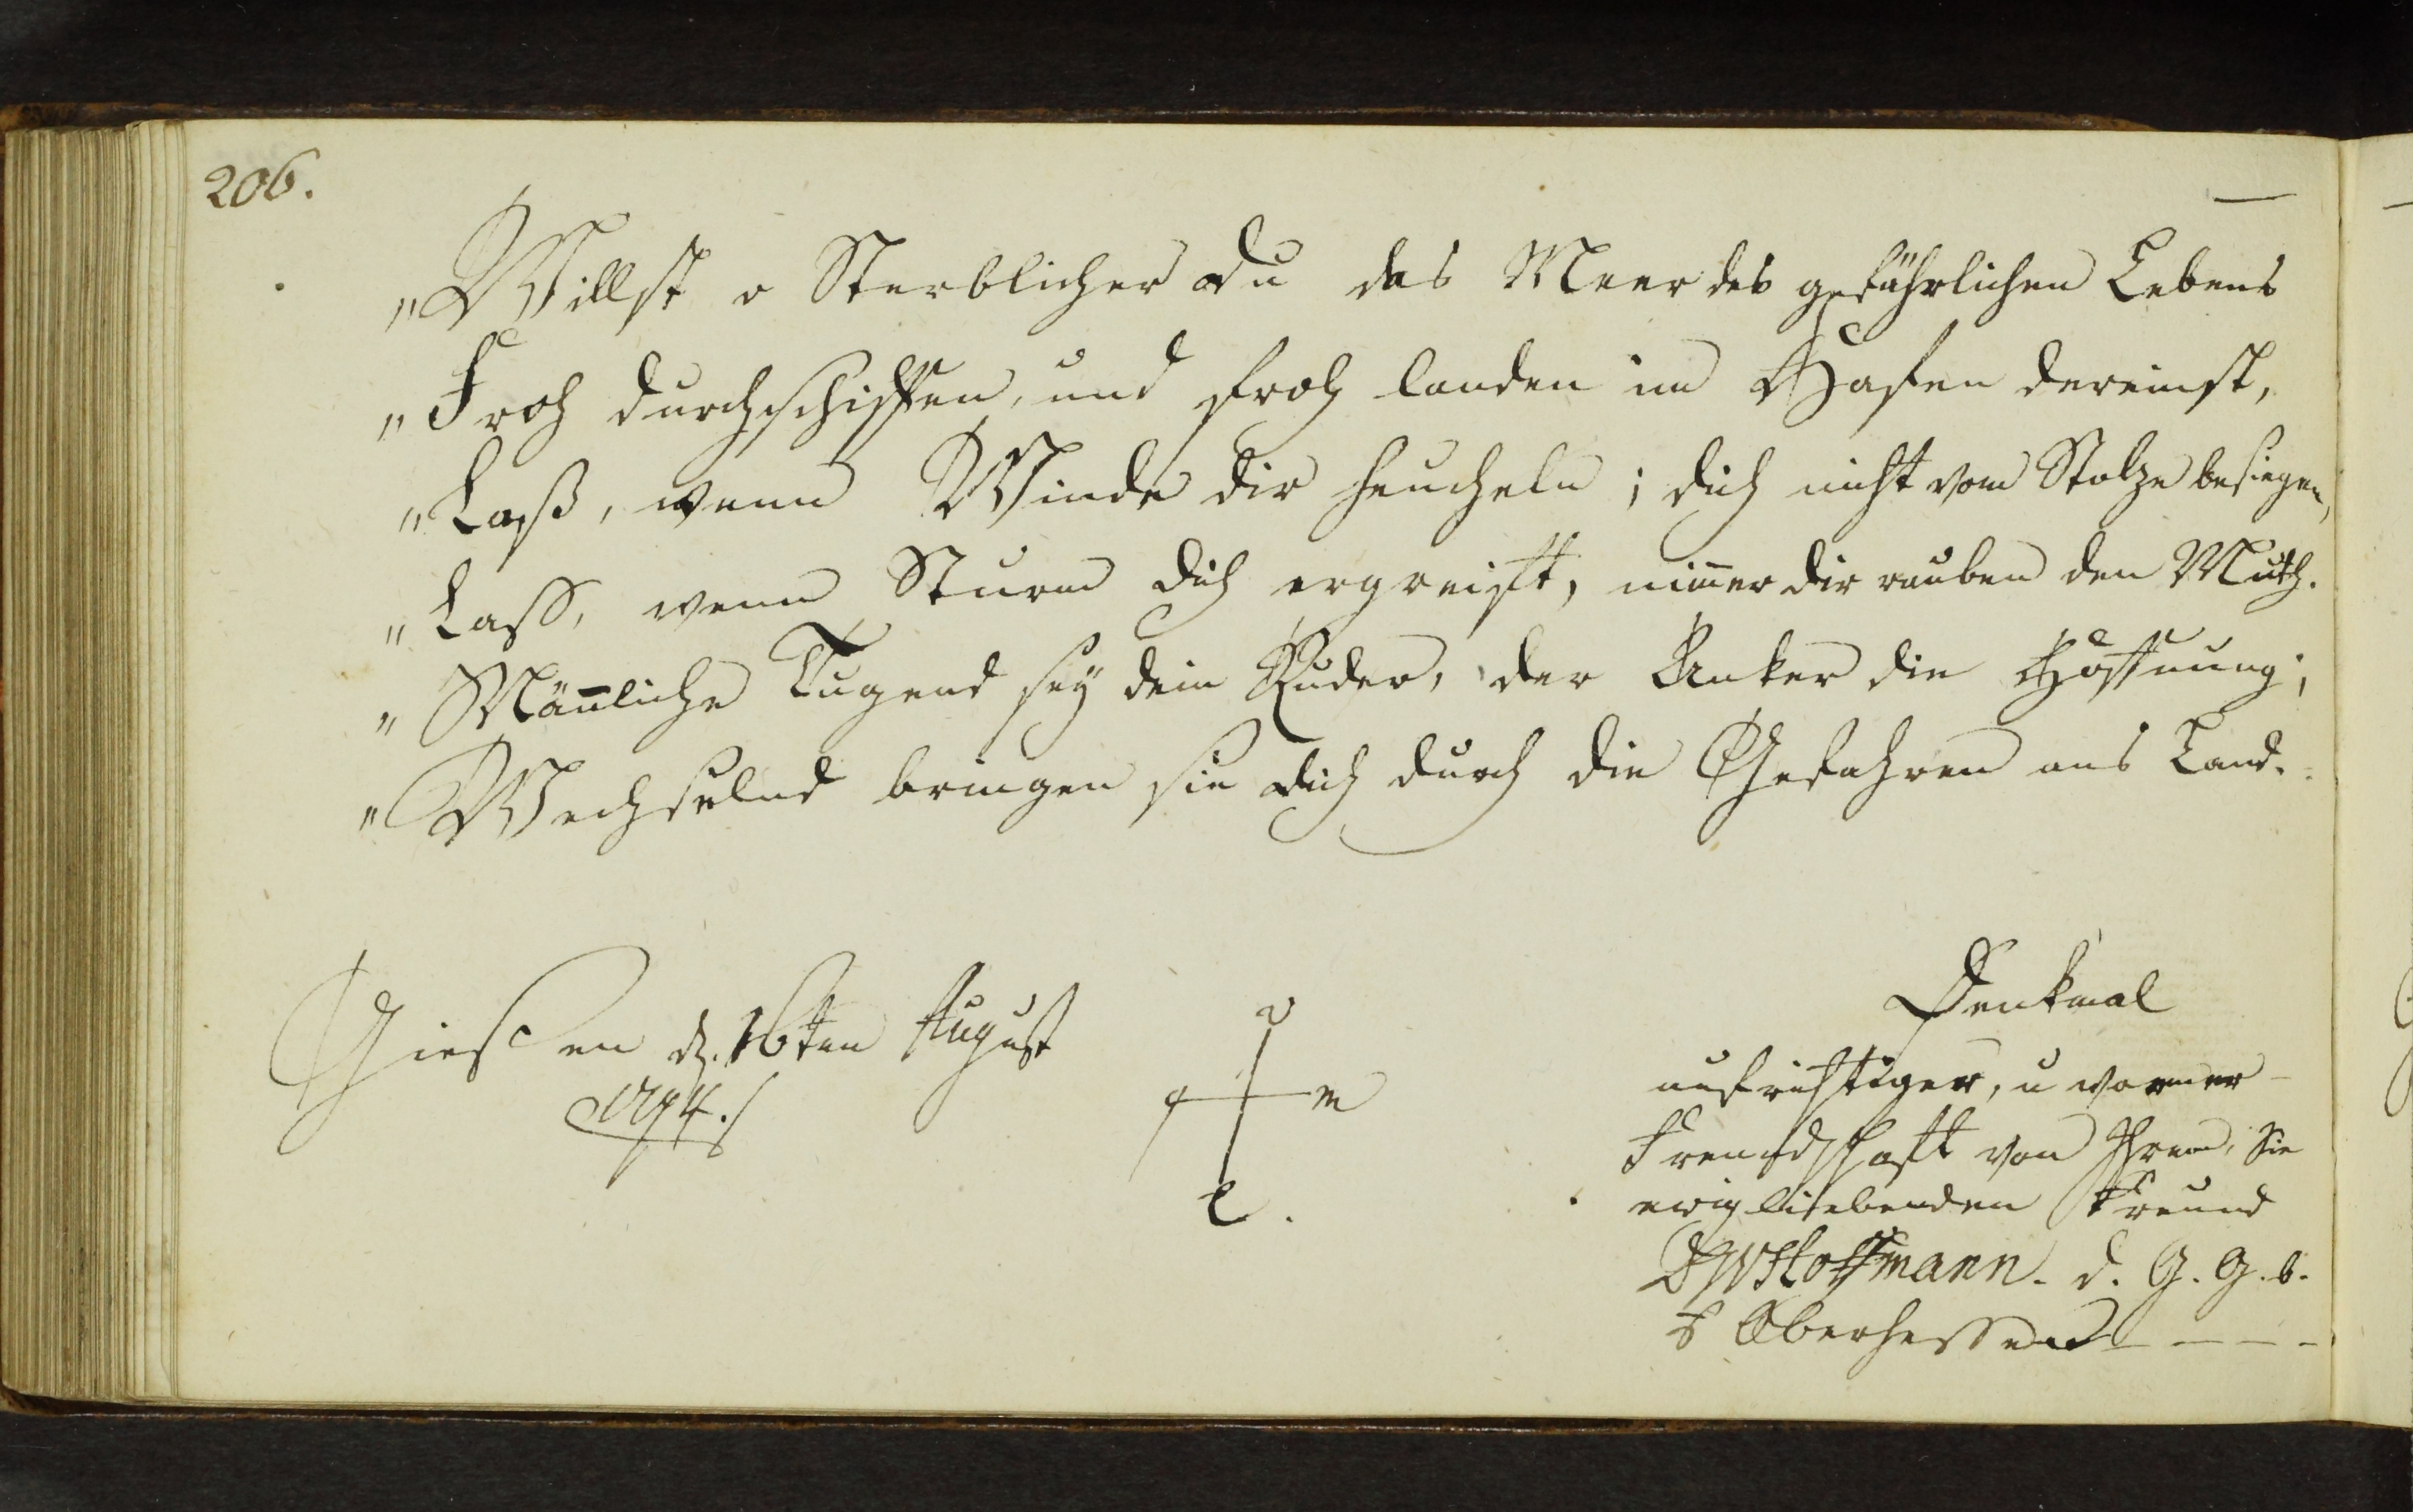 206.
„Willst o Sterblicher du das Meer des gefährlichen Lebens
„Froh durchschiffen, und froh landen im Hafen dereinst,
„Laß, wenn Winde dir heucheln; dich nicht vom Stolze besiegen,
„Lass, wenn Sturm dich ergreift, nim̄er dir rauben den Muth.
„Män̄liche Tugend sey dein Ruder, der Anker die Hoffnung;
„Wechselnd bringen sie dich durch die Gefahren ans Land.
Giessen d. 16ten August
1794.
v
f m
l.
Denkmal
aufrichtiger, u warmer
Freundschaft von Ihrem, Sie
ewig liebenden Freund
Hoffmann. d. G. G. b.
Oberhessen